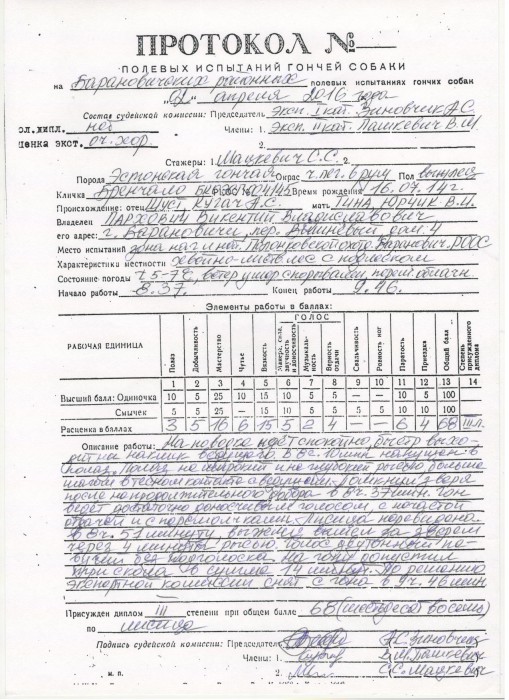 ПРОТОКОЛ №
ПОЛЕВЫХ ИСПЫТАНИЙ ГОНЧЕЙ СОБАКИ
на Барановичских районных полевых испытаниях гончих собак
"02" апреля 2016 года
Состав судейской комиссии: Председатель Эксп. I кат. Зиновчик А.С.
ол. дипл. нет Члены: 1. Эксп. II кат. Пашкевич В.М.
ценка экст. оч. хор. 2.
Стажеры: 1. Мацкевич С.С. 2.
Порода Эстонская гончая Окрас ч. пег. в рум Пол выжлец
Кличка Бренчало Время рождения 16.07.14г.
Происхождение: отец КУГАЧ А.С. мать ТИНА, ЮРЧИК В.И.
Владелец ПАРХОВИЧ Викентий Владиславович
его адрес: г. Барановичи, пер.
Место испытаний зона наги нат. охот. Баранович. РООС
Характеристики местности хвойно-листв. лес с подлеском
Состояние погоды t 5-7°С, ветер умер.
Начало работы 8.37. Конец работы 9.46.
Элементы работы в баллах:
РАБОЧАЯ ЕДИНИЦА Полаз Добычливость Мастерство Чутье Вязкость ГОЛОС Сила, звучность и доносчивость Музыкальность Верность отдачи Свальчивость Ровность ног Паратость Приездка Общий балл Степень присужденного диплома
1 2 3 4 5 6 7 8 9 10 11 12 13 14
Высший балл: Одиночка 10 5 25 10 15 10 5 5 — — 10 5 100
Смычек 5 5 25 — 15 10 5 5 5 5 10 10 100
Расценка в баллах 3 5 16 6 15 5 2 4 — — 6 4 68 III п.
Описание работы: На поводке идёт спокойно, быстр выхо-
дит на наклик ведущего. В 8ч. 10 мин напущен в
полаз. Полаз не широкий и не глубокий рысью больше
шагом в тесном контакте с ведущим. Помкнул зверя
после непродолжительного добора в 8ч. 37 мин. Гон
ведёт достаточно доносчивым голосом, с нечастой
отдачей и с перемолчками. Лисица перевидена
в 8ч. 51 минуту, выжлец вышел за зверем
через 4 минуты
На гону допустил
три скола в сумме 14 минут. По решению
экспертной комиссии снят с гона в 9ч. 46 мин
Присужден диплом III степени при общем балле 68 (шестьдесят восемь)
по лисице
Подпись судейской комиссии: Председатель А.С. Зиновчик
Члены: 1. В.М. Пашкевич
м. п. 2. С.С. Мацкевич